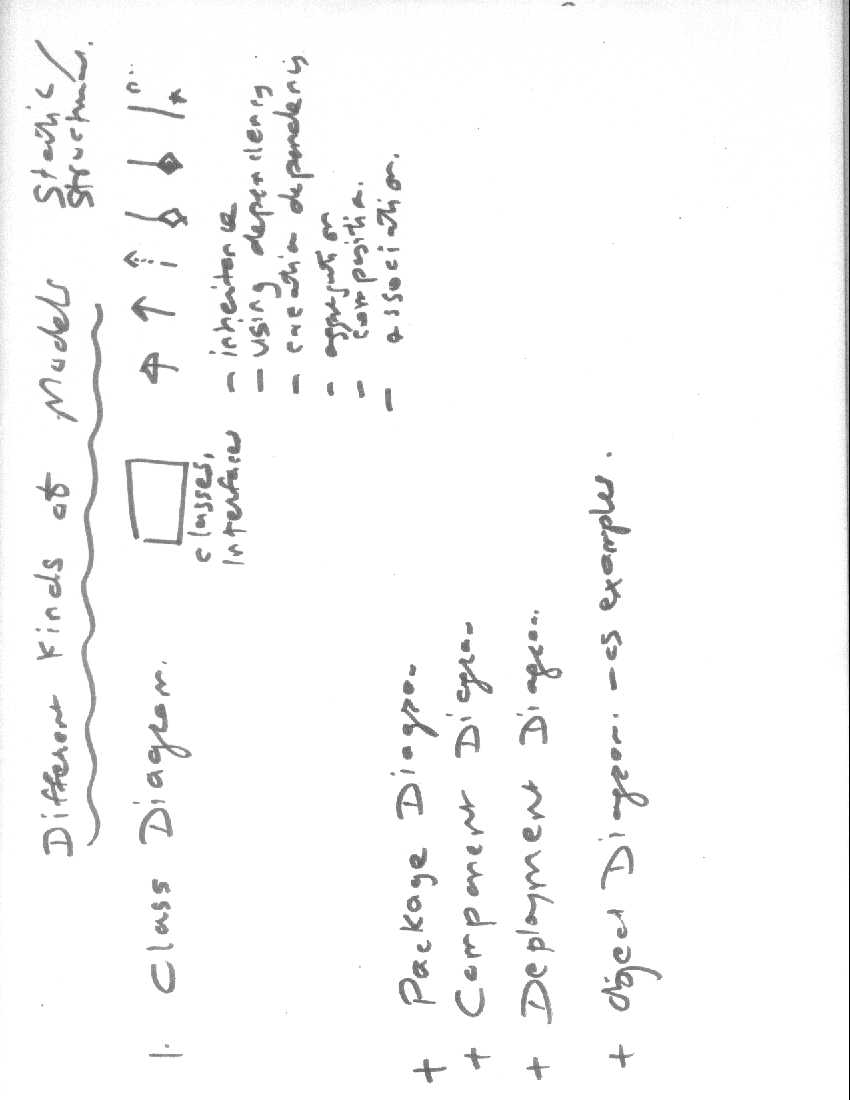 Different Kinds of Models
Static
Structures.
1. Class Diagram.
classes,
Interfaces
n..
*
- inheritance
- using dependency
- creation dependency
- aggregation
- composition.
- association.
+ Package Diagram
+ Component Diagram
+ Deployment Diagram.
+ Object Diagram. - as examples.